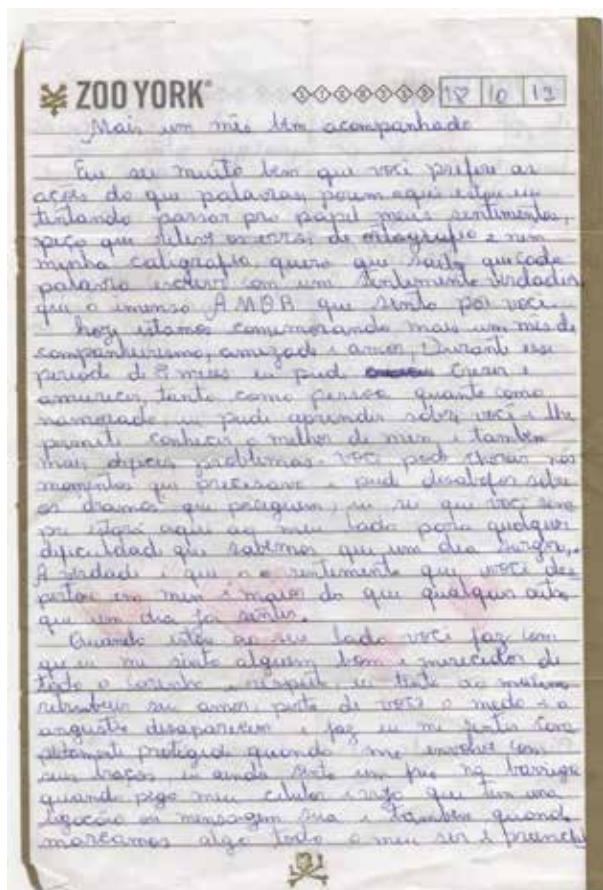 ZOO YORK 18 10 13
Mais um mês bem acompanhado
Eu sei muito bem que você prefere as
ações do que palavras, porem aqui estou eu
tentando passar pro papel meus sentimentos,
peço que releve os erros de ortografia e nem
minha caligrafia, quero que saiba que cada
palavra escrevi com um sentimento verdadei
que o imenso AMOR que sinto por você.
hoje estamos comemorando mais um mês de
companheirismo, amizade e amor, Durante esse
period de 8 meses eu pude crecer e
amurecer, tanto como pessoa quanto como
namorado, eu pude aprender sobre você e lhe
permeti conhecer o melhor de mim, e também
meus problemas. você pode chorar nos
momentos que precisavo e pude desabafar sobre
os dramas que peseguem, eu sei que você sem
pre estará aqui ao meu lado para qualquer
dificuldade que sabemos que um dia surgira.
A verdade é que o sentimento que você des
pertou em mim é maior do que qualquer outro
que um dia fui sentir.
Quando estou ao seu lado você faz com
que eu me sinto alguem bom e merecedor de
todo o carinho e respeito, eu tento ao maximo
retribuir seu amor, perto de você o medo e a
angustia desaparecem e faz eu me sentir com
pletamente protegido quando me envolve com
seus braços, eu ainda sinto um frio na barriga
quando pego meu celular e vejo que tem uma
ligação ou mensagem sua e também quando
marcamos algo todo o meu ser é preenchi